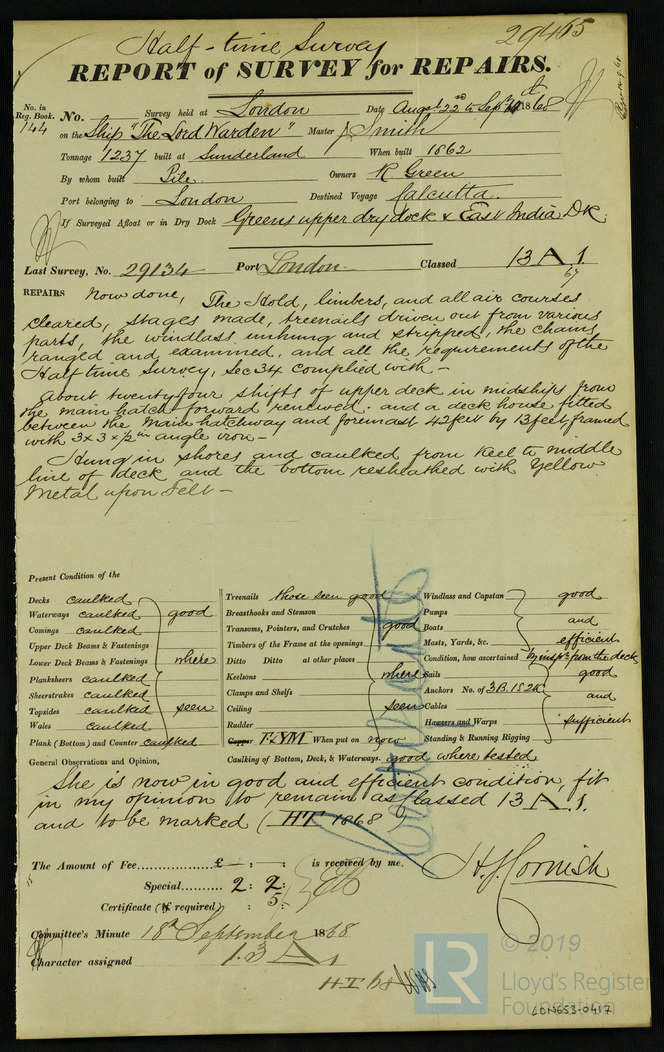 Half-time Survey
29465
REPORT of SURVEY for REPAIRS.
No. in Reg. Book. 144
No. Survey held at London Date Augst. 22nd to Sept. 1868
on the Ship "The Lord Warden" Master J Smith
Tonnage 1237 built at Sunderland When built 1862
By whom built Pile Owners R Green
Port belonging to London Destined Voyage Calcutta
If Surveyed Afloat or in Dry Dock Greens upper dry dock & East India Dk.
Last Survey, No. 29134 Port London Classed 13 A 1
67
REPAIRS Now done, The Hold, limbers, and all air courses
cleared, stages made, treenails driven out from various
parts, the windlass unhung and stripped, the chains
ranged and examined, and all the requirements of the
Half time Survey, Sec 34 complied with -
About twentyfour shifts of upper deck in midships from
the main hatch forward renewed. and a deck house fitted
between the main hatchway and foremast 42 feet by 13 feet, framed
with 3 x 3 x 7/2 in angle iron -
Hung in shores and caulked from Keel to middle
line of deck and the bottom resheathed with Yellow
Metal upon Felt -
Present Condition of the
Decks caulked
Waterways caulked good
Comings caulked
Upper Deck Beams & Fastenings
Lower Deck Beams & Fastenings where
Planksheers caulked
Sheerstrakes caulked
Topsides caulked seen
Wales caulked
Plank (Bottom) and Counter caulked
Treenails those seen good
Breasthooks and Stemson
Transoms, Pointers, and Crutches good
Timbers of the Frame at the openings
Ditto Ditto at other places
Keelsons where
Clamps and Shelfs
Ceiling seen
Rudder
Copper F&YM When put on now
Caulking of Bottom, Deck, & Waterways. good where tested
Windlass and Capstan good
Pumps
Boats and
Masts, Yards, &c. efficient
Condition, how ascertained by insp. from the deck
Sails good
Anchors No. of 3B. 1S 2K
Cables and
Hawsers and Warps sufficient
Standing & Running Rigging
General Observations and Opinion,
She is now in good and efficient condition, fit
in my opinion to remain as classed 13 A. 1.
and to be marked (HT 1868)
The Amount of Fee £ - : - : is received by me,
Special 2 : 2 :
Certificate (if required) : 5 :
H.J. Cornish
Committee's Minute 18th September 1868
Character assigned 13 A 1
HT 68
© 2019
LR
Lloyd's Register
Foundation
LON653-0417